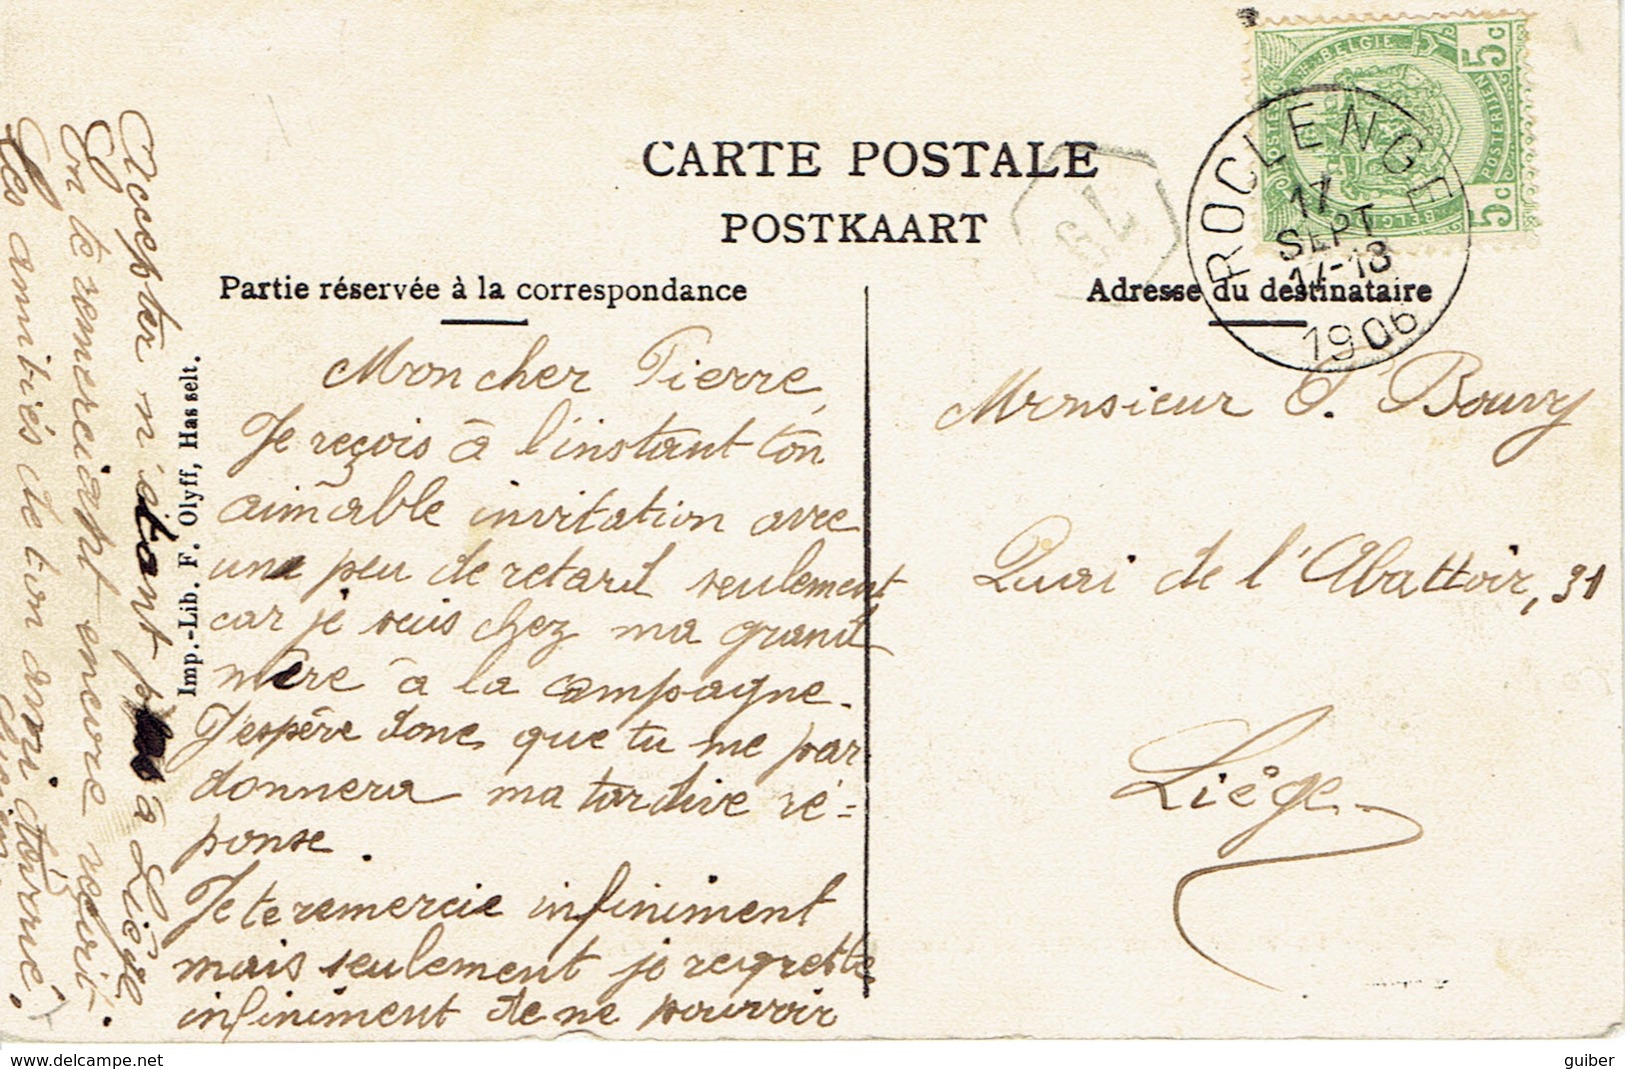 CARTE POSTALE
POSTKAART
Partie réservée à la correspondance
Adresse du destinataire
BELGIE
5c
POSTERIJEN
BELGIQUE
5c
ROCLENGE
17
SEPT
17-18
1906
GL
Mon cher Pierre,
Je reçois à l'instant ton
aimable invitation avec
une peu de retard seulement
car je suis chez ma grand
mère à la campagne.
J'espère donc que tu me par
donnera ma tardive ré=
ponse.
Je te remercie infiniment
mais seulement je regrette
infiniment de ne pourvoir
Accepter n'étant pas à Liège
En te remerciant encore reçoit
Les amitiés de ton ami dévoué.
Imp.-Lib. F. Olyff, Hasselt.
Monsieur P. Bouvy
Quai de l'Abattoir, 31
Liège
delcampe.net
guiber